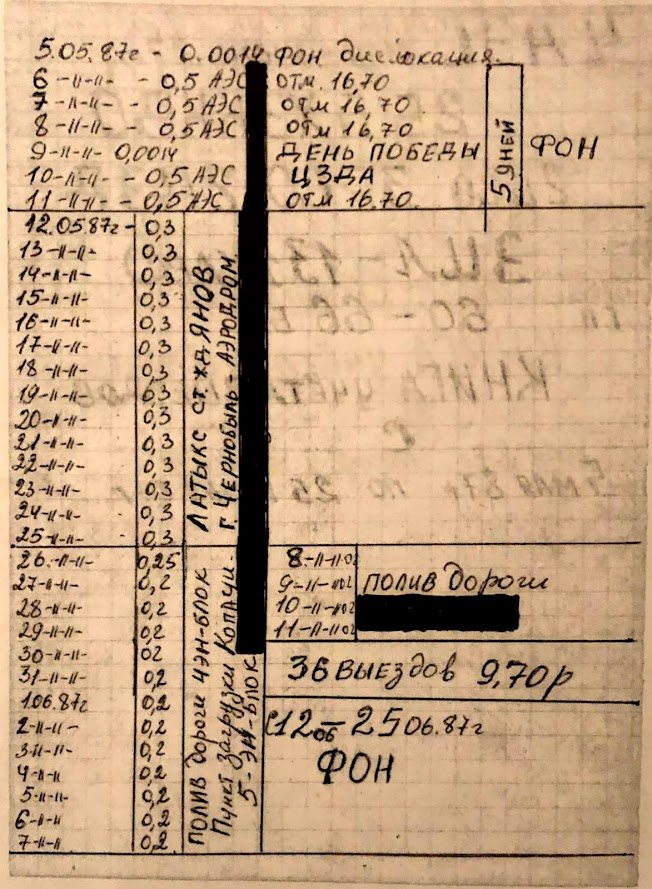 5.05.87г - 0.0014 ФОН дислокация.
6 -||-||- - 0,5 АЭС отм. 16,70
7 -||-||- - 0,5 АЭС отм 16,70
8 -||-||- - 0,5 АЭС отм 16,70
9 -||-||- 0,0014 ДЕНЬ ПОБЕДЫ
10 -||-||- - 0,5 АЭС ЦЗДА
11 -||-||- - 0,5 АЭС отм 16,70.
5 ДНЕЙ
ФОН
12.05.87г - 0,3
13 -||-||- 0,3
14 -||-||- 0,3
15 -||-||- 0,3
16 -||-||- 0,3
17 -||-||- 0,3
18 -||-||- 0,3
19 -||-||- 0,3
20 -||-||- 0,3
21 -||-||- 0,3
22 -||-||- 0,3
23 -||-||- 0,3
24 -||-||- 0,3
25 -||-||- 0,3
ЛАТЫКС СТ. ЖД ЯНОВ
г. Чернобыль - АЭРОДРОМ
26. -||-||- 0,25
27 -||-||- 0,2
28 -||-||- 0,2
29 -||-||- 0,2
30 -||-||- 02
31 -||-||- 0,2
1.06.87г 0,2
2 -||-||- 0,2
3 -||-||- 0,2
4 -||-|| 0,2
5 -||-||- 0,2
6 -||-|| 0,2
7 -||-|| 0,2
ПОЛИВ дороги 4ЭН-БЛОК
Пункт загрузки Копачи.
5-ЭН-БЛОК
8 -||-|| 02
9 -||-|| 02
10 -||-|| 02
11 -||-|| 02
ПОЛИВ дороги
36 выездов 9,70р
С 12 06 - 25 06.87г
ФОН